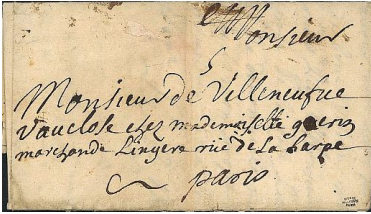 Monsieur
Monsieur de Villeneufue
Vauclose chez mademoiselle guerin
marchande Lingere rüe de La harpe
paris